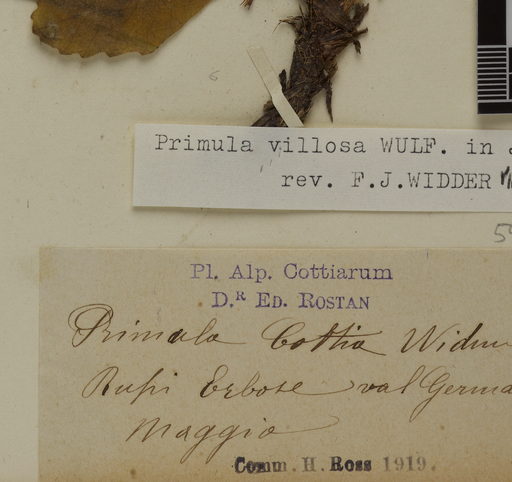 6
Primula villosa WULF. in
rev. F.J.WIDDER
Pl. Alp. Cottiarum
D.R ED. ROSTAN
Primula Cottia Widm
Rupi Erbose val Germa
Maggio
Comm. H. Ross 1919.